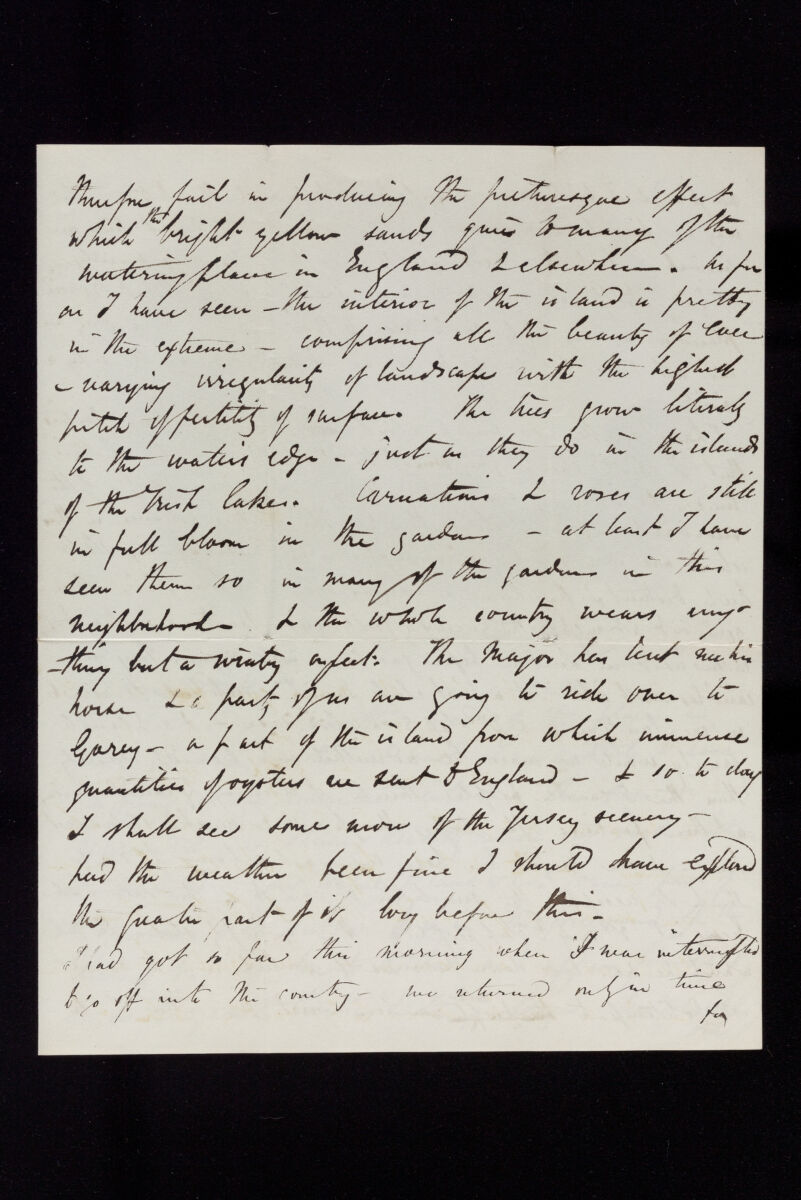 therefore fail in producing the picturesque effect
which the bright yellow sands give to many of the
watering places in England & elsewhere. As far
as I have seen – the interior of the island is pretty
in the extreme – comprising all the beauty of ever
– varying irregularity of landscape with the highest
pitch of fertility of surface. The trees grow literally
to the waters edge – just as they do in the islands
of the Irish lakes. Carnations & roses are still
in full bloom in the gardens – at least I have
seen them so in many of the gardens in this
neighborhood – & the whole country wears any-
-thing but a wintry aspect. The Major has lent me his
horse & a party of us are going to ride over to
Gorey – a part of the island from which immense
quantities of oysters are sent to England – & so to day
I shall see some more of the Jersey scenery –
had the weather been fine I should have explored
the greater part of it long before this –
I had got so far this morning when I was interrupted
to go off into the country – we returned only in time
for